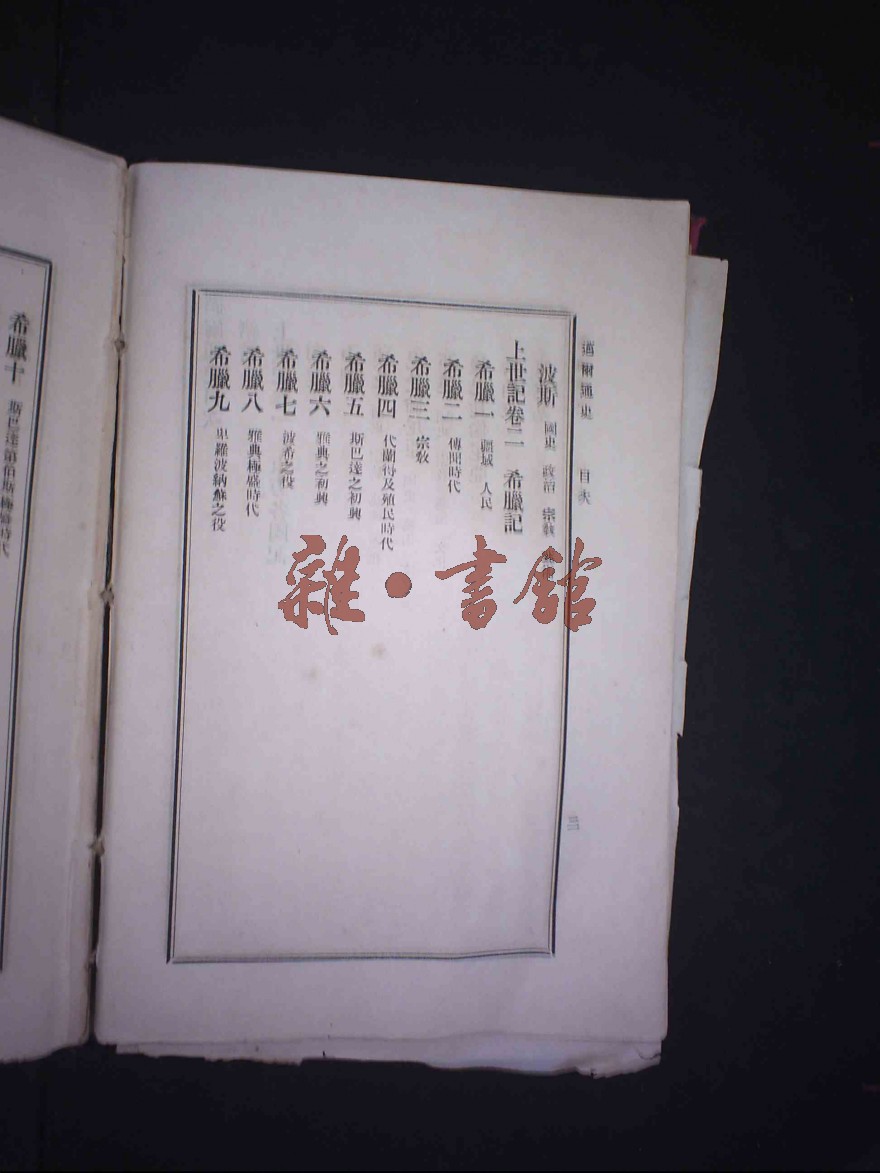 邁爾通史 目次
波斯 國史 政治 宗敎
上世記卷二 希臘記
希臘一 疆域 人民
希臘二 傳聞時代
希臘三 宗敎
希臘四 代蘭得及殖民時代
希臘五 斯巴達之初興
希臘六 雅典之初興
希臘七 波希之役
希臘八 雅典極盛時代
希臘九 卑羅波納蘇之役
三
希臘十 斯巴達第伯斯極盛時代
雜·書館